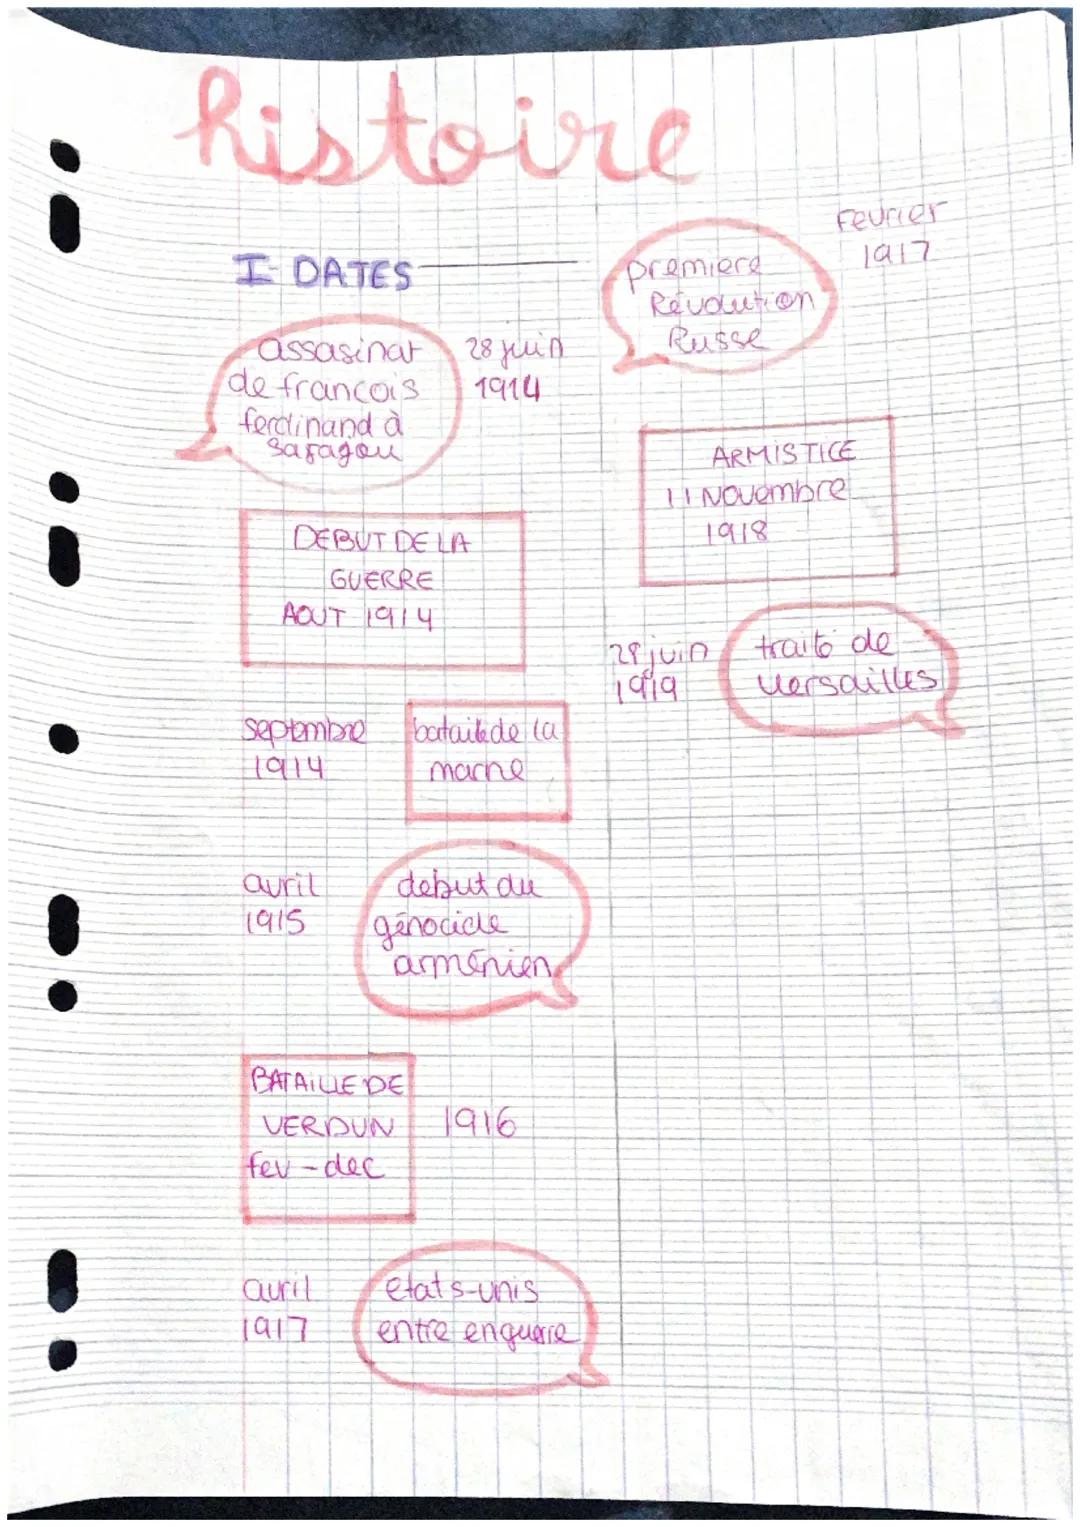 histoire
I- DATES
assasinat
de francois
ferdinand à
28 juin
1914
DEBUT DE LA
GUERRE
AOUT 1914
septembre
1914
bataille de la
marne
avril
1915
debut du
génocide
arménien
BATAILLE DE
VERDUN
fev - dec
1916
avril
1917
etats-unis
entre en guerre
premiere
Révolution
Russe
Fevrier
1917
ARMISTICE
11 Novembre
1918
28 juin
1919
traité de
Versailles